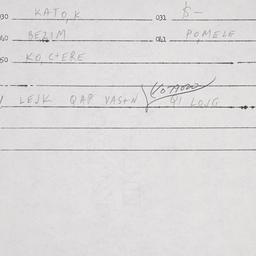 030 KATO,K 031 $-
040 BEZIM 041 POMELE
050 KO,C+ERE
LEJK QAP VAS+N QI LOJG